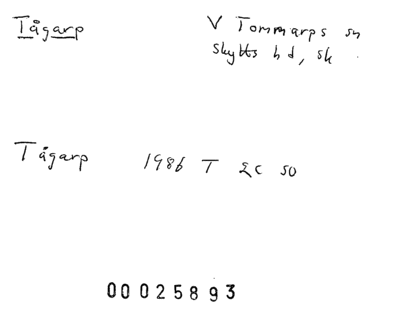 Tågarp V Tommarps sn
Skytts hd, sk
Tågarp 1986 T ÄC so
00025893